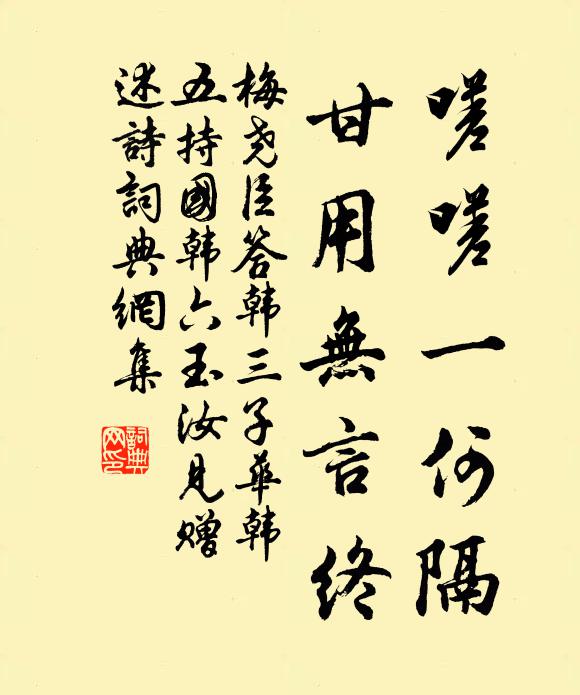 嗟嗟一何隔
甘用無言終
梅尧臣答韩三子華韩
五持國韩六玉汝見赠
述詩詞典網集
詞典
网印